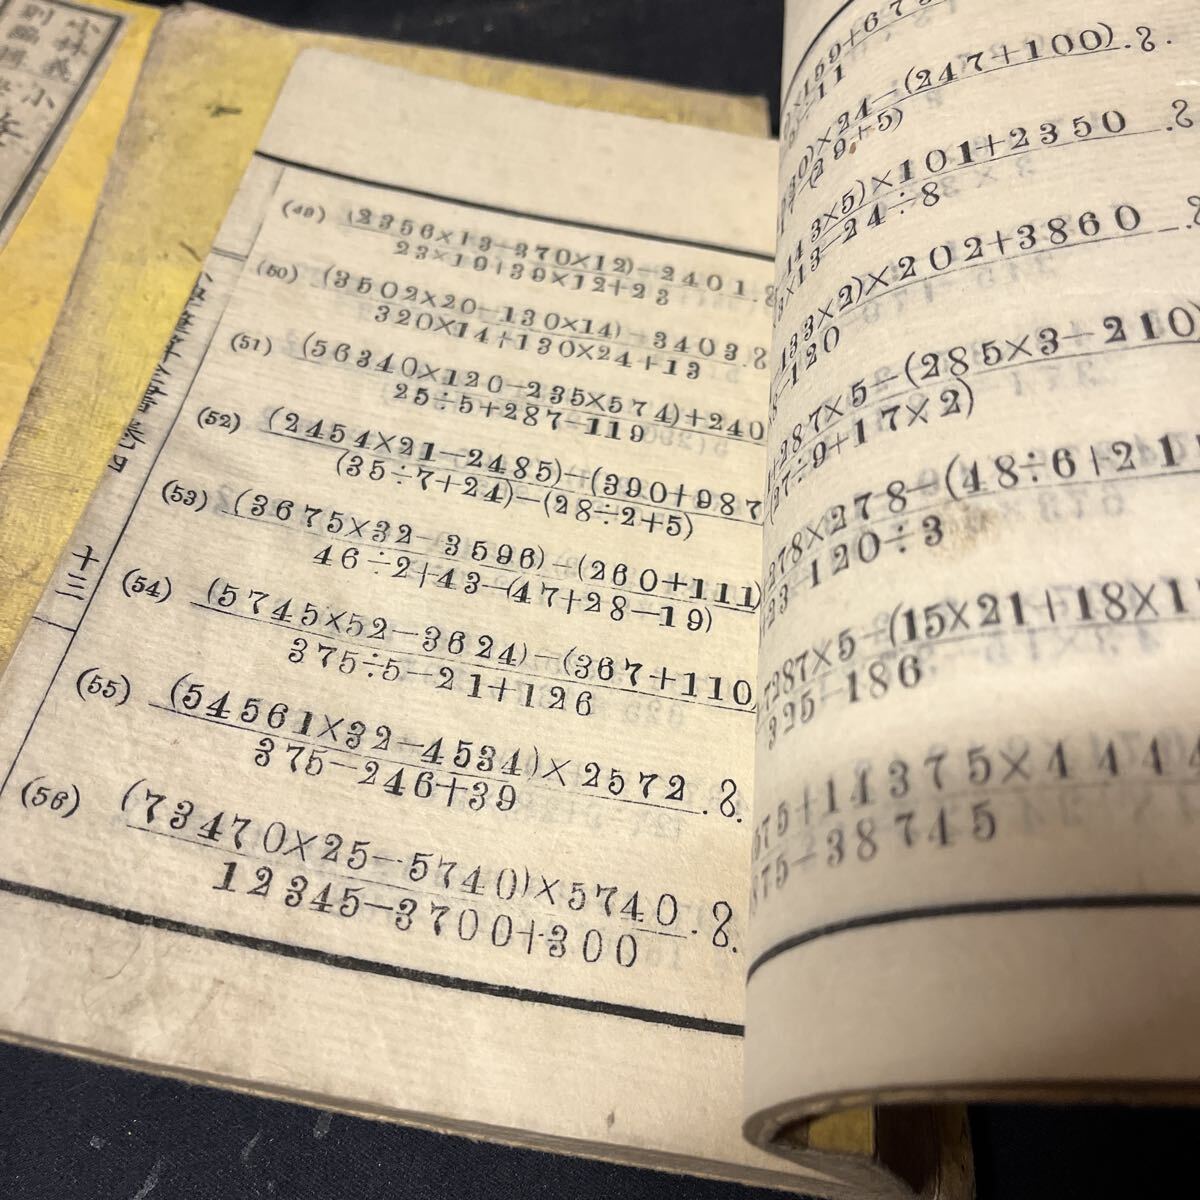 小林義
小學
十三
(49) (2356×13-370×12)-2401.?
23×19+39×12+23
(50) (3502×20-130×14)-3403.?
320×14+130×24+13
(51) (56340×120-235×574)+240
25÷5+287-119
(52) (2454×21-2485)-(390+987
(35÷7+24)-(28÷2+5)
(53) (3675×32-3596)-(260+111)
46÷2+43-(47+28-19)
(54) (5745×52-3624)-(367+110)
375÷5-21+126
(55) (54561×32-4534)×2572.?.
375-246+39
(56) (73470×25-5740)×5740.?.
12345-3700+300
×159+675
11
30)×24-(247+100).?.
(29+5)
143×5)×101+2350.?
×13-24÷8
133×2)×202+3860.?
-120
+287×5-(285×3-210)
(27÷9+17×2)
278×278-(48÷6+21
23-120÷3
7287×5-(15×21+18×1
325-186
575+14375×4444
875-38745